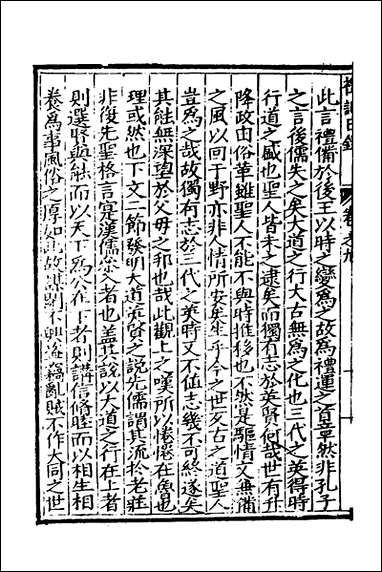 此言禮備於後王以時之變為之故為禮運之首章然非孔子
之言後儒失之矣大道之行大古無為之化也三代之英得時
行道之盛也聖人皆未之逮矣而獨有志於英賢何哉世有升
降政由俗革雖聖人不能不與時推移也不然是驅情文無備
之風以回于野亦非人情所安矣生乎今之世反古之道聖人
豈為之哉故獨有志於三代之英時又不值志幾不可終遂矣
其能無深望於父母之邦也哉此觀上之嘆所以惓惓在魯也
理或然也下文二節發明大道與賢之說先儒謂其流於老莊
非後先聖格言寔漢儒入者也蓋其說以大道之行在上者
則選賢與能而以天下為公在下者則講信脩睦而以相生相
養為事風俗之厚如此故謀閉不興盜竊亂賊不作大同之世